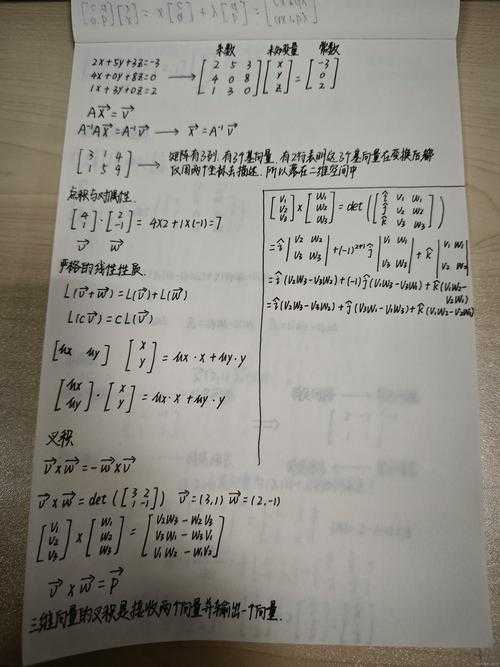 系数 未知变量 常数
2x+5y+3z=-3
4x+0y+8z=0 → [2 5 3; 4 0 8; 1 3 0] [x; y; z] = [-3; 0; 2]
1x+3y+0z=2
Ax⃗=v⃗
A⁻¹Ax⃗=A⁻¹v⃗ → x⃗=A⁻¹v⃗
[3 1 4; 1 5 9] → 矩阵有3列,有3个基向量,有2行表明这3个基向量在变换后都
仅用两个坐标去描述,所以落在二维空间中
点积与对偶性
[4; 1]·[2; -1] = 4×2+1×(-1)=7
v⃗ w⃗
严格的线性性质
L(v⃗+w⃗)=L(v⃗)+L(w⃗)
L(cv⃗)=cL(v⃗)
[ux uy] [x; y] = ux·x+uy·y
[ux; uy]·[x; y] = ux·x+uy·y
叉积
v⃗×w⃗=-w⃗×v⃗
v⃗×w⃗=det([3 2; 1 -1]) v⃗=(3,1) w⃗=(2,-1)
[V₁; V₂; V₃]×[W₁; W₂; W₃]=[V₂W₃-W₂V₃; V₃W₁-W₃V₁; V₁W₂-W₁V₂]
v⃗×w⃗=p⃗
三维向量的叉积是接收两个向量并输出一个向量.
[V₁; V₂; V₃]×[W₁; W₂; W₃]=det([î V₁ W₁; ĵ V₂ W₂; k̂ V₃ W₃])
=î|V₂ W₂; V₃ W₃|+(-1)²⁺¹ĵ|V₁ W₁; V₃ W₃|+k̂|V₁ W₁; V₂ W₂|
=î(V₂W₃-V₃W₂)+(-1)ĵ(V₁W₃-V₃W₁)+k̂(V₁W₂-
V₂W₁)
=î(V₂W₃-V₃W₂)+ĵ(V₃W₁-V₁W₃)+k̂(V₁W₂-V₂W₁)